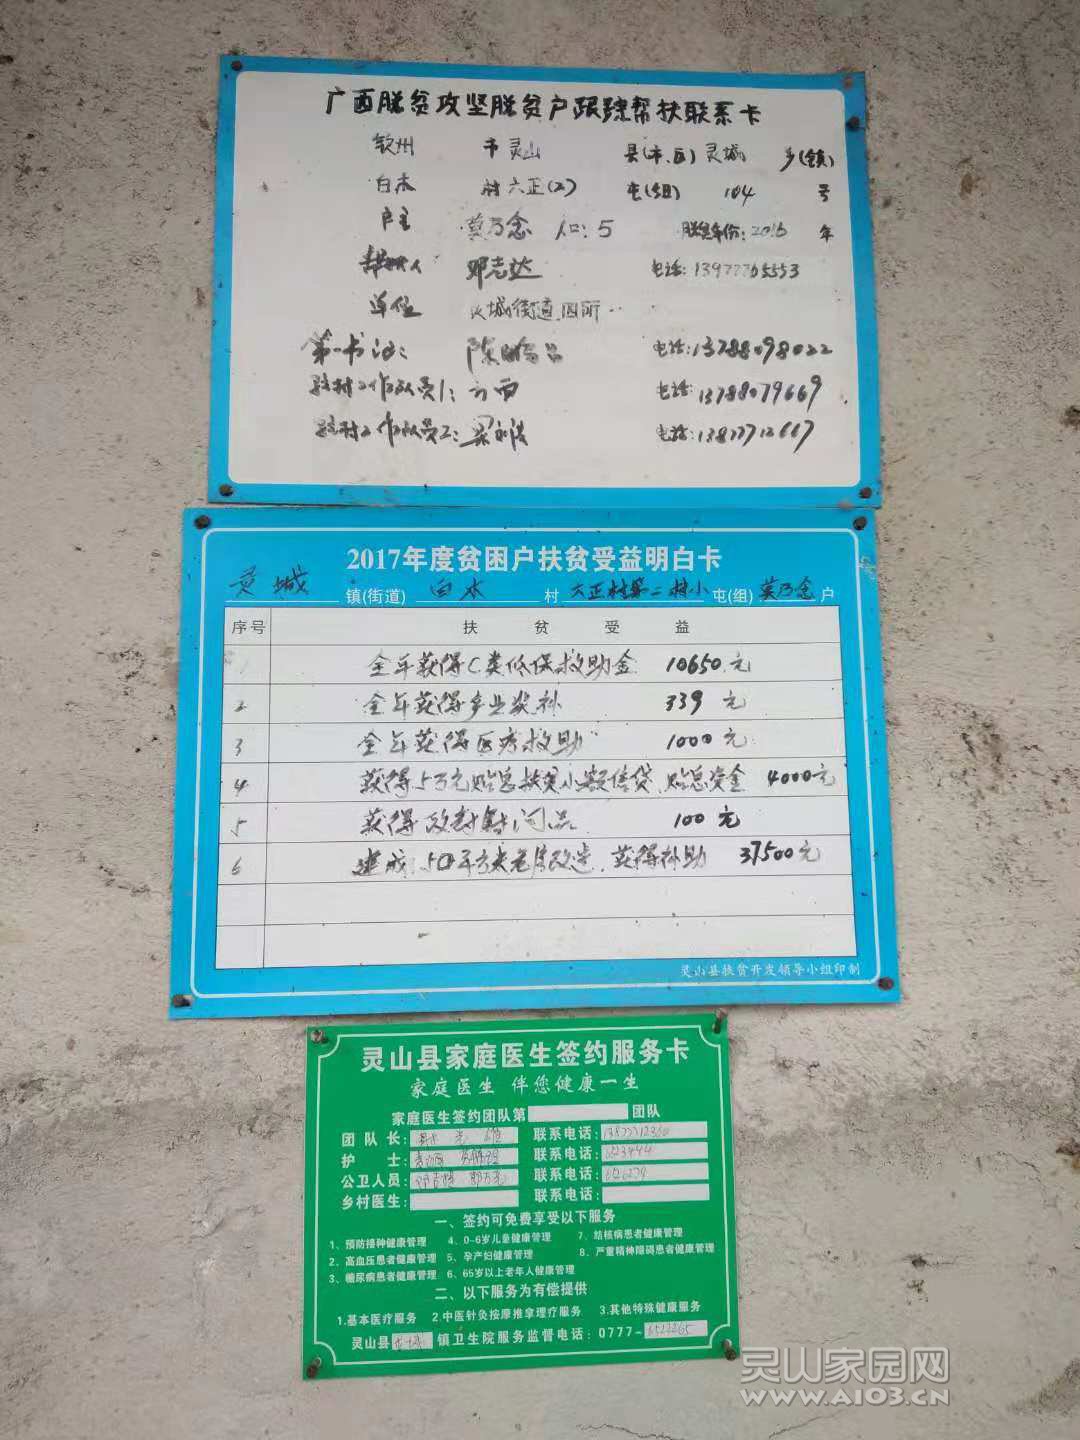 广西脱贫攻坚脱贫户跟踪帮扶联系卡
钦州 市 灵山 县(市、区) 灵城 乡(镇)
白木 村 六正(2) 屯(组) 104 号
户主 莫乃念 人口: 5 脱贫年份: 2016 年
帮扶人 邓志达 电话: 13977765553
单位 灵城街道 四所
第一书记: 陈 电话: 13788098022
驻村工作队员1: 电话: 13788079669
驻村工作队员2: 梁 电话: 13877712667
2017年度贫困户扶贫受益明白卡
灵城 镇(街道) 白木 村 六正村第二村小 屯(组) 莫乃念 户
序号 扶 贫 受 益
1 全年获得C类低保救助金 10650元
2 全年获得产业奖补 339元
3 全年获得医疗救助 1000元
4 获得5万元贴息扶贫小额信贷,贴息资金 4000元
5 获得政府慰问品 100元
6 建成50平方米危房改造,获得补助 37500元
灵山县扶贫开发领导小组印制
灵山县家庭医生签约服务卡
家庭医生 伴您健康一生
家庭医生签约团队第 团队
团队长: 联系电话: 13877712360
护士: 联系电话: 6423444
公卫人员: 联系电话:
乡村医生: 联系电话:
一、签约可免费享受以下服务
1、预防接种健康管理 4、0-6岁儿童健康管理 7、结核病患者健康管理
2、高血压患者健康管理 5、孕产妇健康管理 8、严重精神障碍患者健康管理
3、糖尿病患者健康管理 6、65岁以上老年人健康管理
二、以下服务为有偿提供
1.基本医疗服务 2中医针灸按摩推拿理疗服务 3.其他特殊健康服务
灵山县 镇卫生院服务监督电话: 0777-6522265
灵山家园网
www.A103.CN